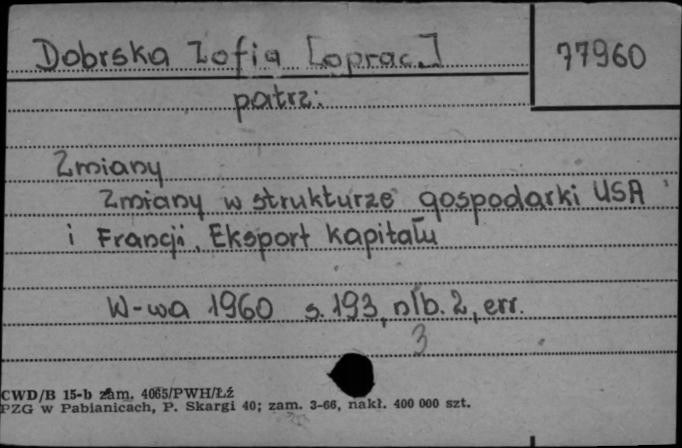 Dobrska Zofia [oprac.]
77960
patrz:
Zmiany
Zmiany w strukturze gospodarki USA
i Francji. Eksport kapitału
W-wa 1960 s. 193, nlb. 2, err.
3
CWD/B 15-b zam. 4065/PWH/Łź
PZG w Pabianicach, P. Skargi 40; zam. 3-66, nakł. 400 000 szt.